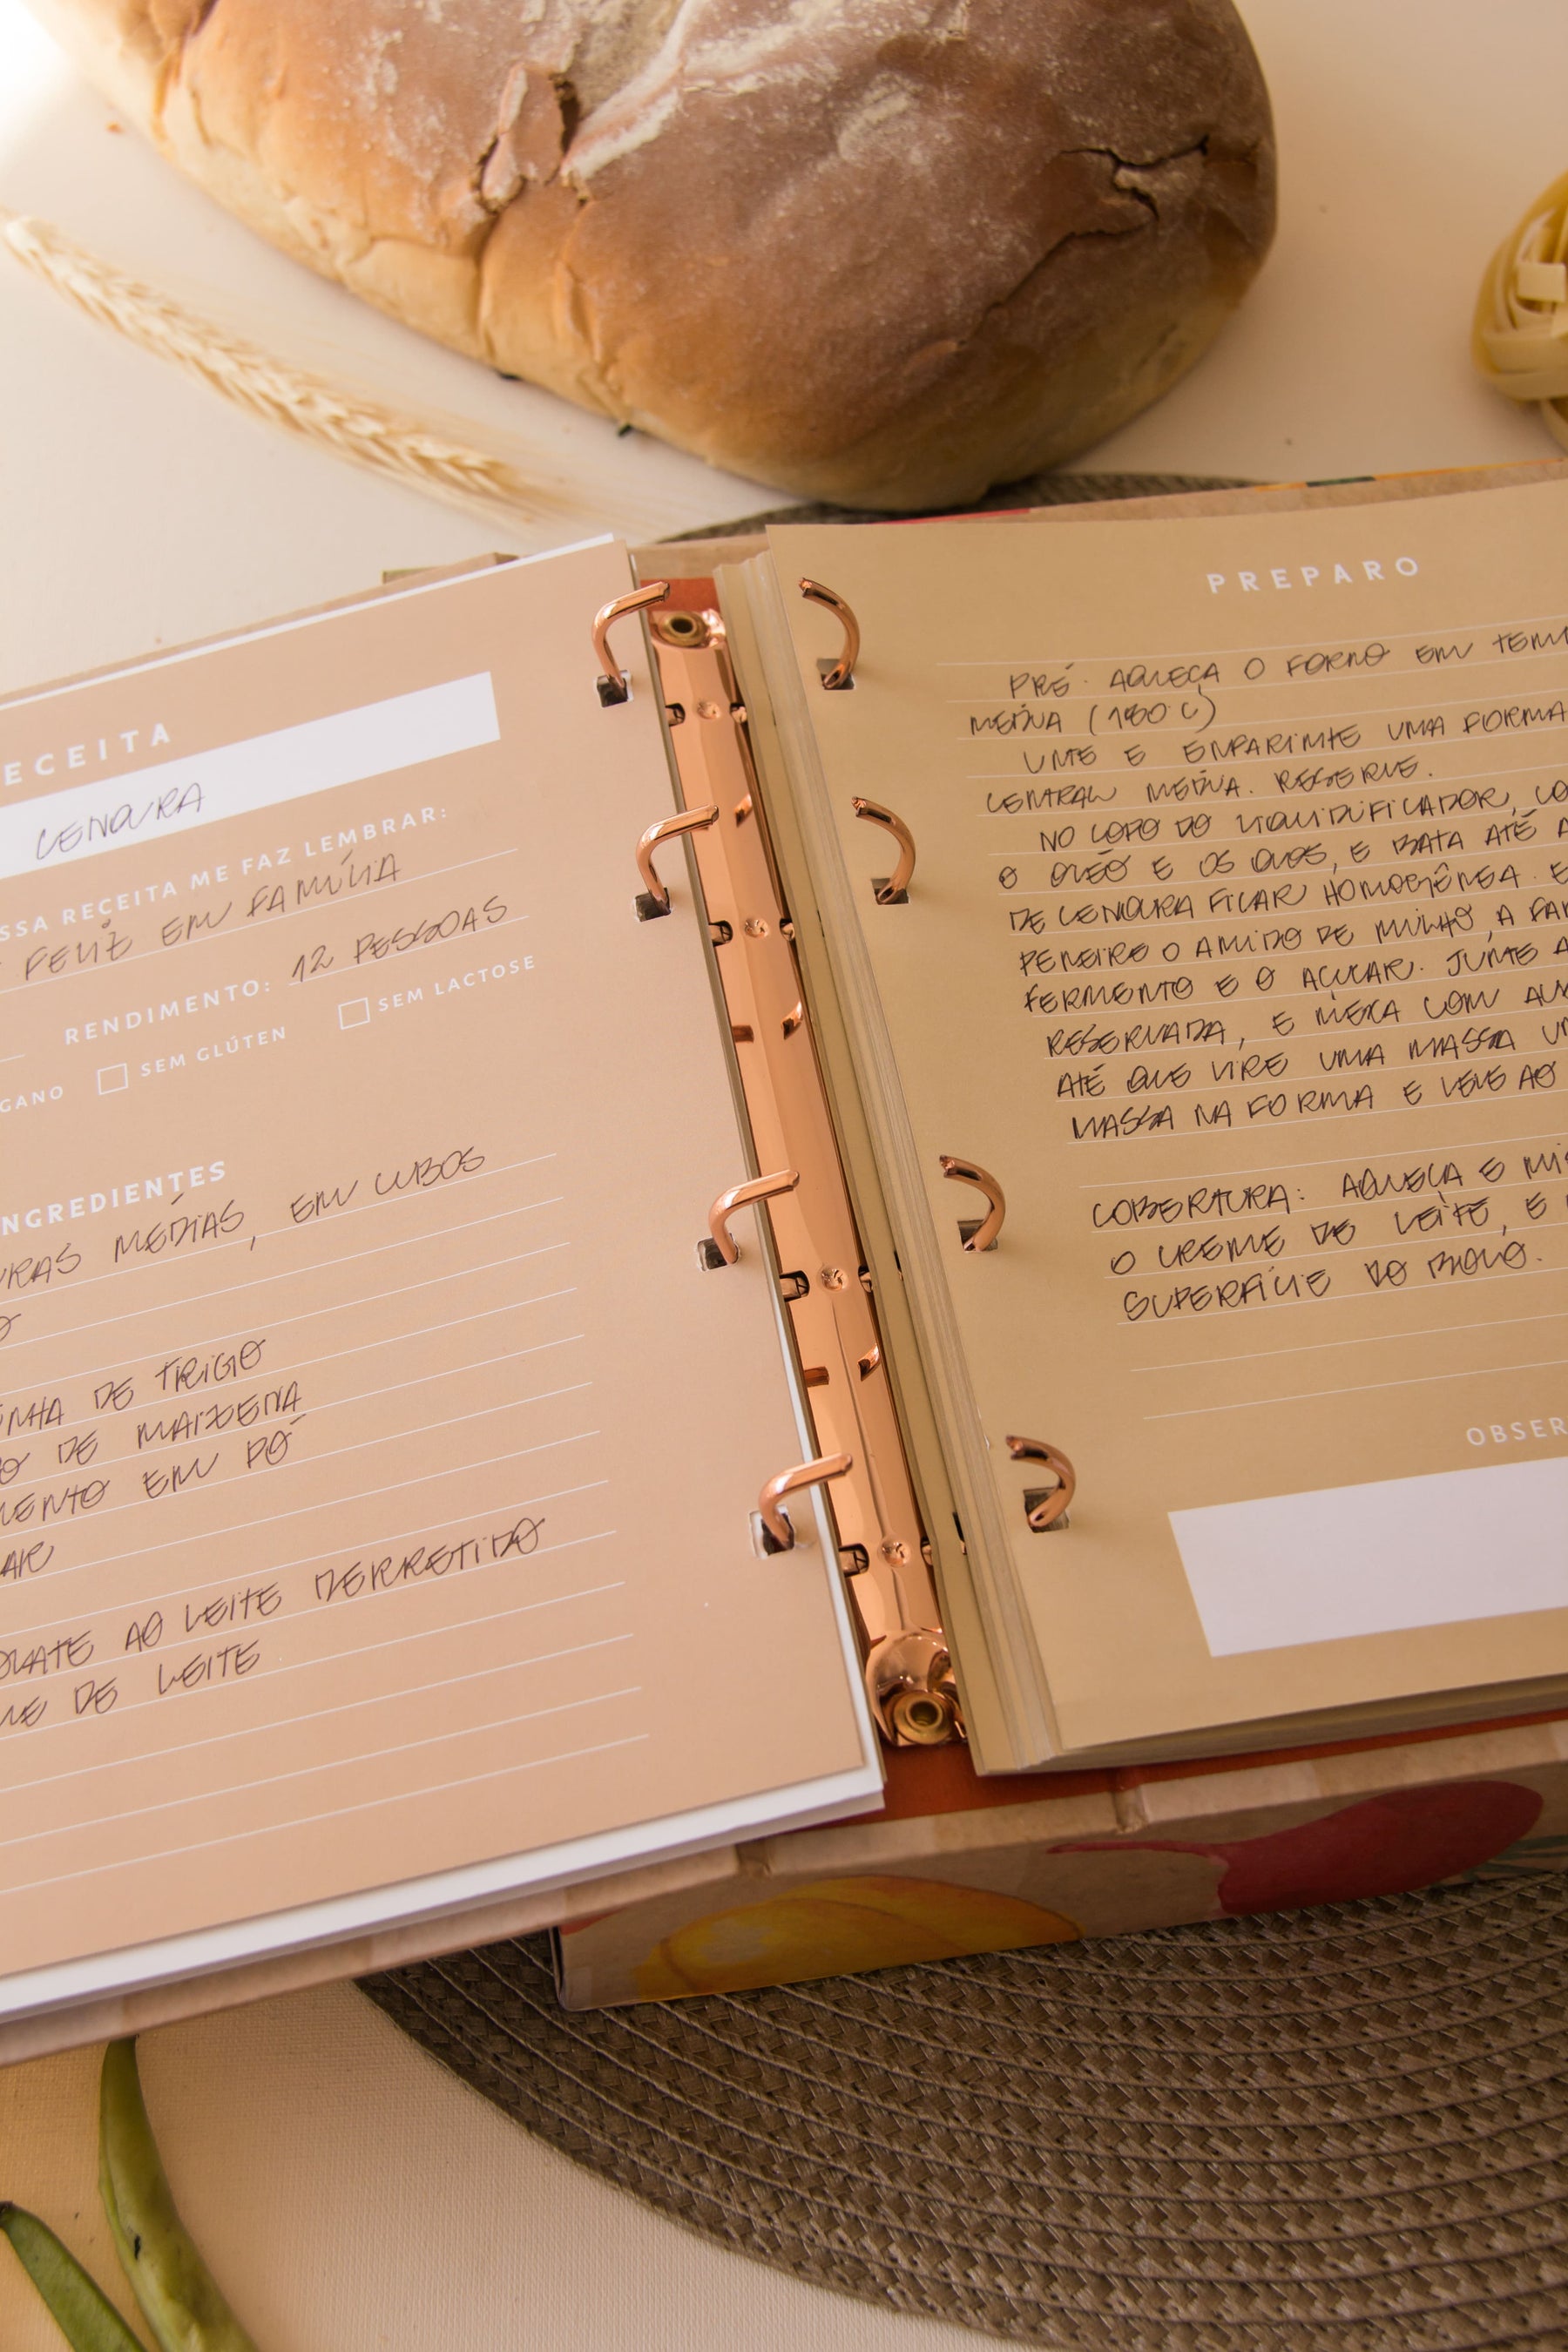 ECEITA
CENOURA
SSA RECEITA ME FAZ LEMBRAR:
FELIZ EM FAMÍLIA
RENDIMENTO: 12 PESSOAS
GANO SEM GLÚTEN SEM LACTOSE
NGREDIENTES
RAS MÉDIAS, EM CUBOS
O
NHA DE TRIGO
O DE MAIZENA
MENTO EM PÓ
AR
OLATE AO LEITE DERRETIDO
ME DE LEITE
PREPARO
PRÉ-AQUEÇA O FORNO EM TEM
MÉDIA (180°C)
UNTE E ENFARINHE UMA FORMA
CENTRAL MÉDIA. RESERVE.
NO COPO DO LIQUIDIFICADOR, CO
O ÓLEO E OS OVOS, E BATA ATÉ A
DE CENOURA FICAR HOMOGÊNEA. E
PENEIRE O AMIDO DE MILHO, A FAR
FERMENTO E O AÇUCAR. JUNTE A
RESERVADA, E MEXA COM AU
ATÉ QUE VIRE UMA MASSA UN
MASSA NA FORMA E LEVE AO
COBERTURA: AQUEÇA E MIS
O CREME DE LEITE, E
SUPERFÍCIE DO BOLO.
OBSER